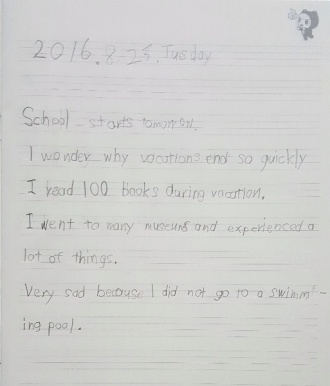 2016. 8-25. Tusday
School starts tomorrow.
I wonder why vacations end so quickly
I read 100 books during vacation.
I went to many museums and experienced a
lot of things.
Very sad because I did not go to a swimm-
ing pool.